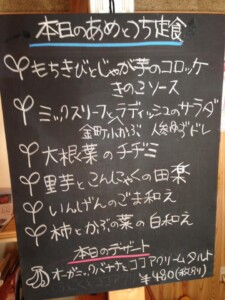 本日のあめつち定食
もちきびとじゃが芋のコロッケ
きのこソース
ミックスリーフとラディッシュのサラダ
金町小かぶ 人参ドレ
大根葉のチヂミ
里芋とこんにゃくの田楽
いんげんのごま和え
柿とかぶの葉の白和え
本日のデザート
オーガニックバナナとココアクリームタルト
¥480